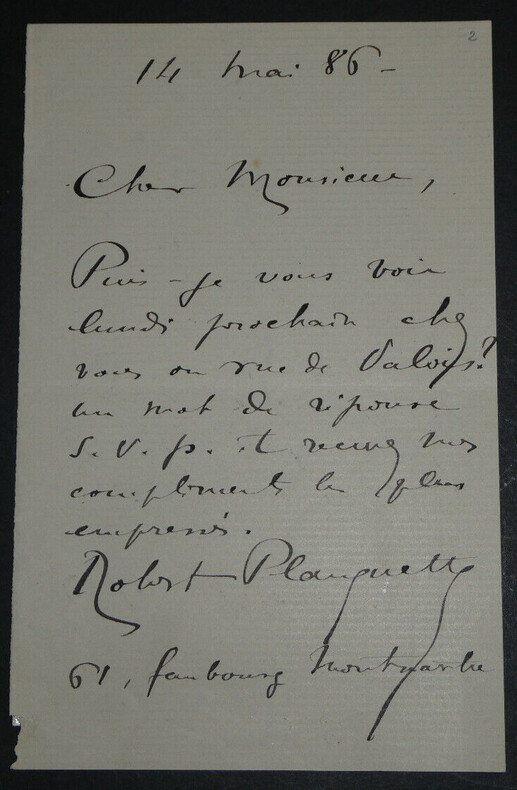 2
14 mai 86 -
Cher Monsieur,
Puis-je vous voir
lundi prochain chez
vous ou rue de Valois?
un mot de réponse
S. V. p. et recevez mes
compliments les plus
empressés.
Robert Planquette
61, faubourg Montmartre